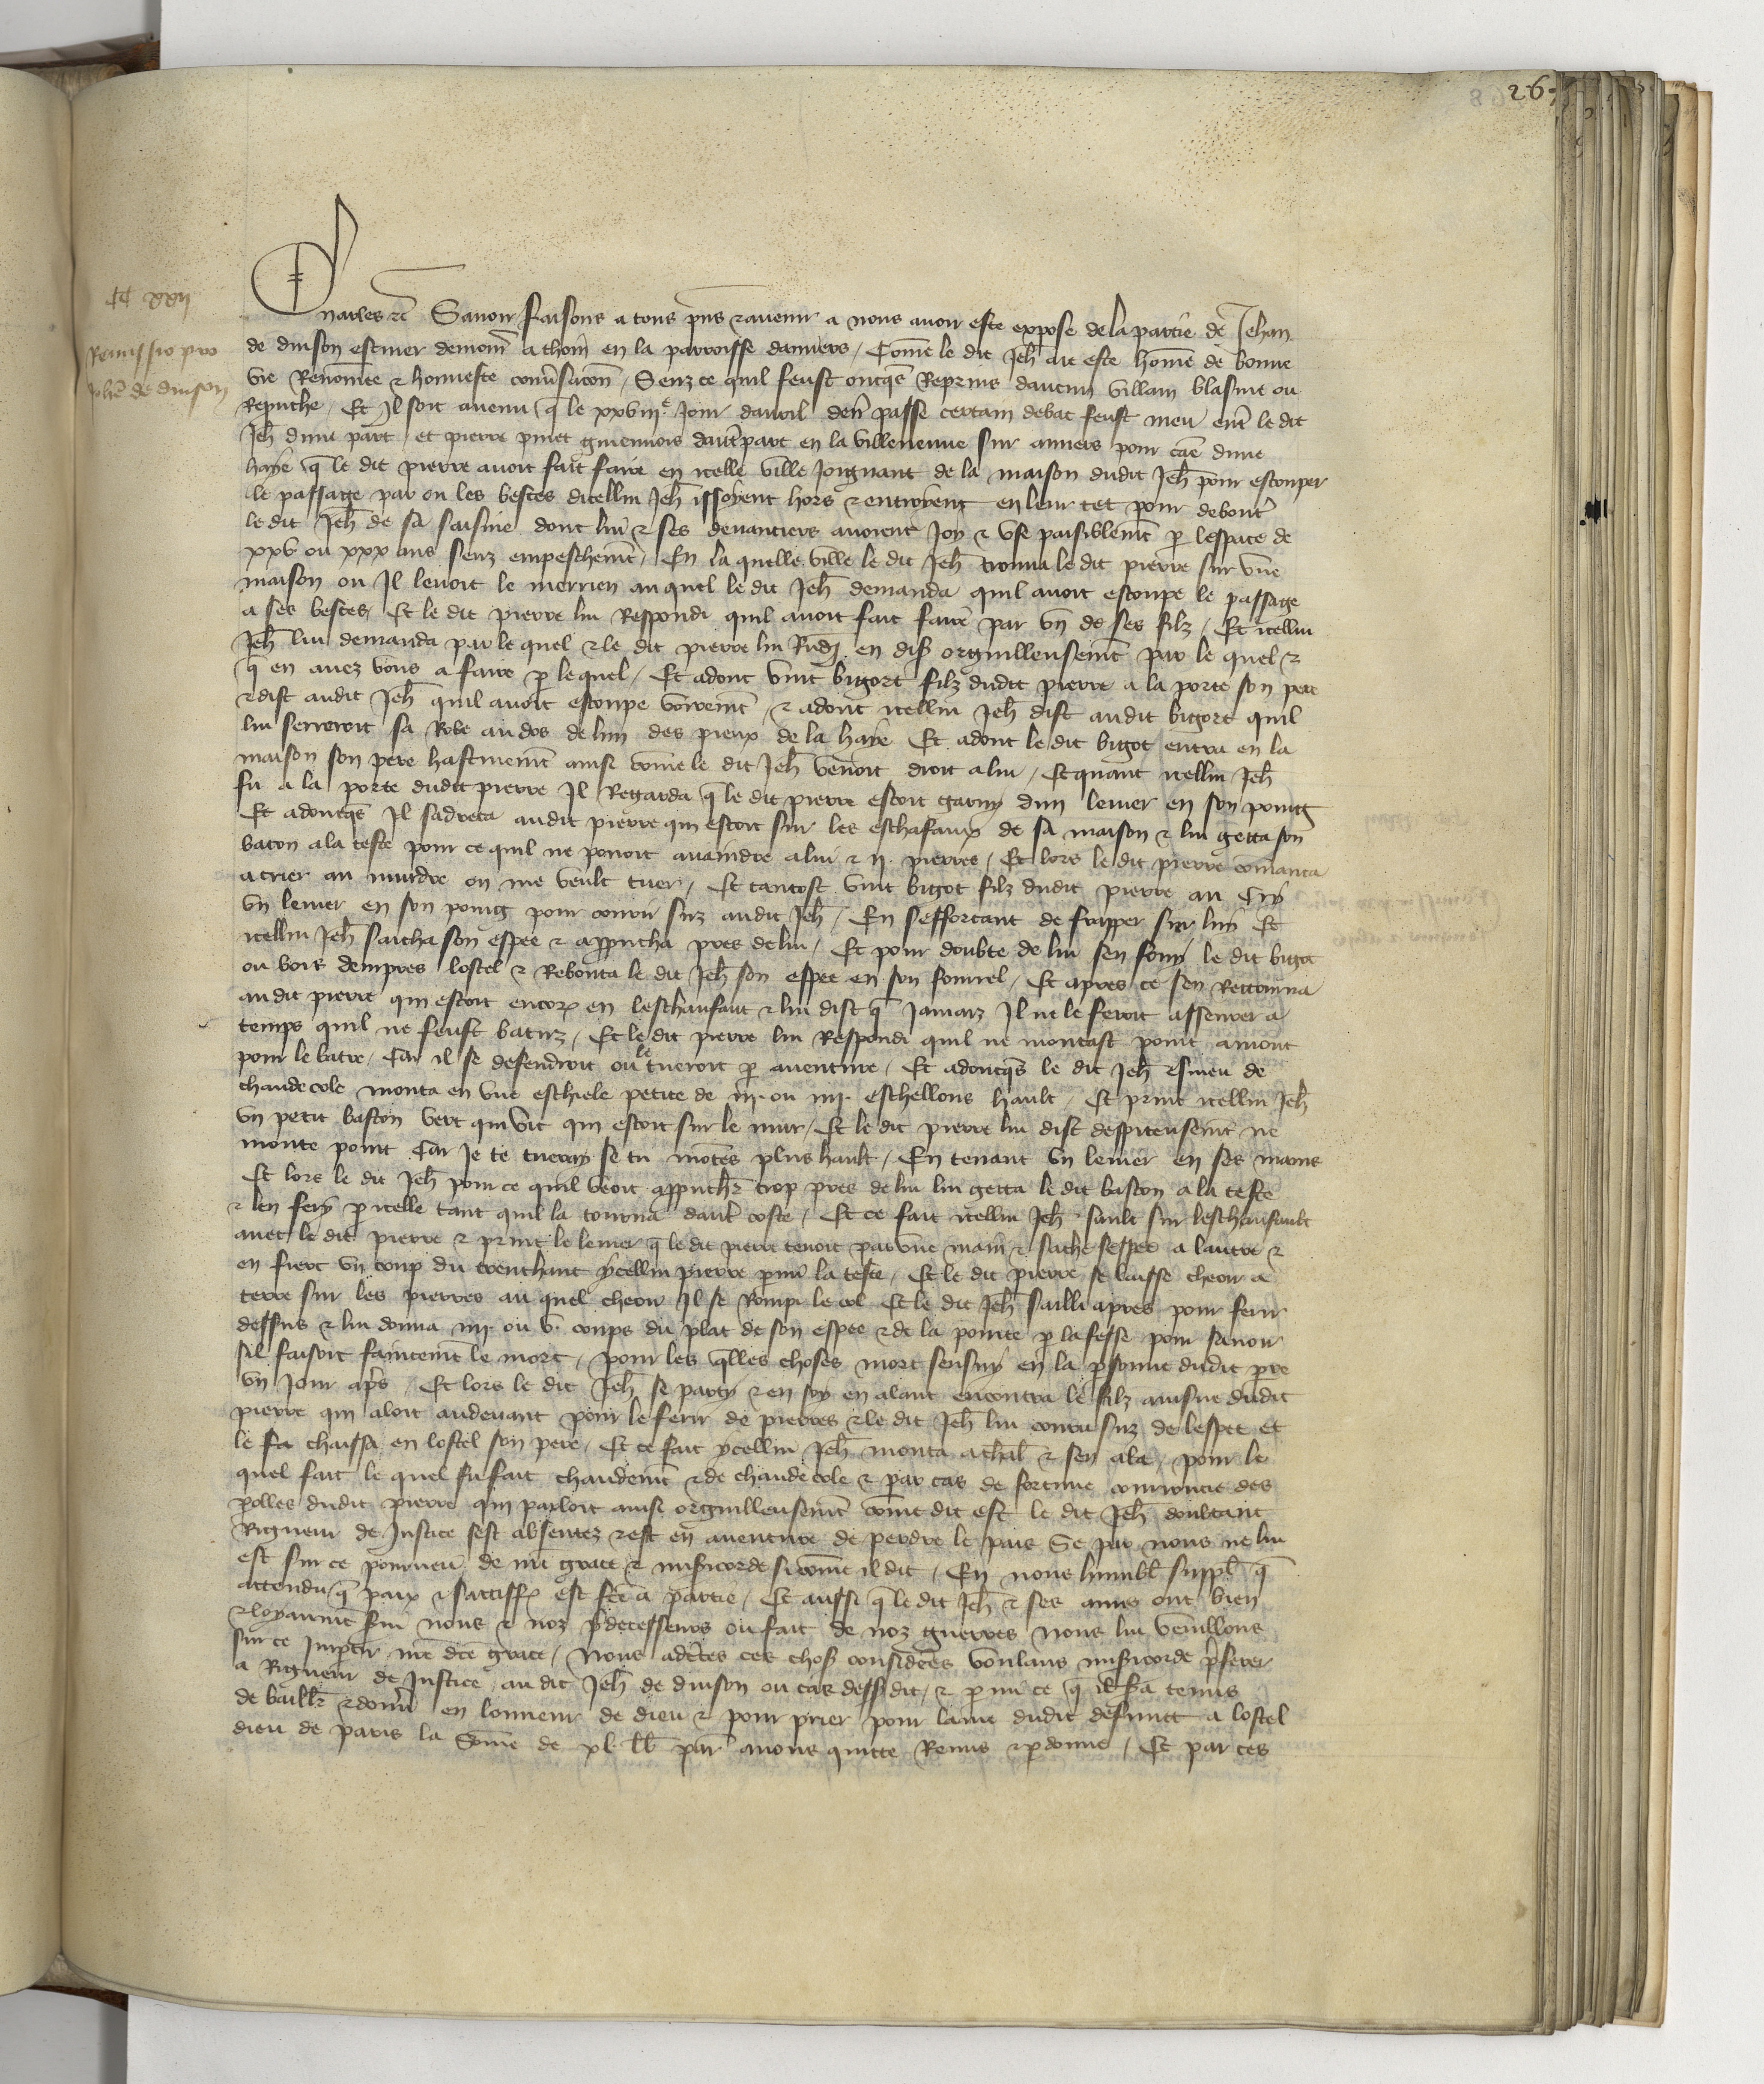 26
CC XXII
Remissio pro
Johe de duison
Charles etc Savoir faisons a tous pns et avenir a nous avoir este expose de la partie de Jehan
de duison escuier demour a thoui en la parroisse danvers / Come le dit Jeh ait este homme de bonne
vie Renomee et honneste conusacon / Senz ce quil feust oncqs Reprins daucun villain blasme ou
Reprouche / Et Il soit avenu q le xxviiie Jour davril derr passe certain debat feust meu entre le dit
Jeh dune part / et pierre dautre part en la villeneuve sur anvers pour cae dune
haye q le dit pierre avoit fait faire en icelle ville Joignant de la maison dudit Jeh pour estouper
le passage par ou les bestes dicellui Jeh issoyent hors et entroient en leur tet pour debouter
le dit Jeh de sa saisine dont lui et ses devanciers avoient Joy et use paisiblemt p lespace de
xxv ou xxx ans senz empeschemt / En la quelle ville le dit Jeh trouva le dit pierre sur une
maison ou Il levoit le merrien au quel le dit Jeh demanda quil avoit estoupe le passage
a ses bestes / Et le dit pierre lui Respondi quil avoit fait faire par un de ses filz / Et icellui
Jeh lui demanda par le quel et le dit pierre lui Rndi en dis orguilleusemt par le quel et
q en avez vous a faire p le quel / Et adont vint bigort filz dudit pierre a la porte son pere
et dist audit Jeh quil avoit estoupe voiremt / et adont icellui Jeh dist audit bigort quil
lui serreroit sa Robe au dos de lun des pieux de la haye Et adont le dit bigot entra en la
maison son pere hastivemt ainsi come le dit Jeh venoit droit a lui / Et quant icellui Jeh
fu a la porte dudit pierre Il Regarda q le dit pierre estoit garny dun levier en son poing
Et adoncqs Il sadreca audit pierre qui estoit sur les eschafaux de sa maison et lui getta son
baton a la teste pour ce quil ne povoit avaindre a lui et ii pierres / Et lors le dit pierre comanca
a crier au murdre on me veult tuer / Et tantost vint bigot filz dudit pierre au Cry
un levier en son poing pour courir suz audit Jeh / En sefforcant de frapper sur lui Et
icellui Jeh sacha son espee et approucha pres de lui / Et pour doubte de lui sen fouy le dit bigot
ou bois dempres lostel et Rebouta le dit Jeh son espee en son fourrel / Et apres ce sen Retourna
audit pierre qui estoit encor en leschaufaut et lui dist q Jamaiz Il ne le feroit asseurer a
temps quil ne feust batuz / Et le dit pierre lui Respondi quil ne montast point amont
pour le batre / Car il se defendroit ou le tueroit p aventure / Et adoncqs le dit Jeh esmeu de
chaude cole monta en une eschiele petite de iii ou iiii eschellons hault / Et print icellui Jeh
un petit baston vert qui vit qui estoit sur le mur / Et le dit pierre lui dist despiteusemt ne
monte point Car Je te tueray se tu montes plus hault / En tenant un levier en ses mains
Et lors le dit Jeh pour ce quil veoit approucher trop pres de lui lui getta le dit baston a la teste
et len fery p icelle tant quil la tourna dautre coste / Et ce fait icellui Jeh sault sur leschaufault
avec le dit pierre et print le levier q le dit pierre tenoit par une main et sache sespee a lautre et
en fiert un coup du trenchant ycellui pierre parmi la teste / Et le dit pierre se laisse cheoir a
terre sur les pierres au quel cheoir Il se Rompi le col Et le dit Jeh sailli apres pour ferir
dessus et lui donna iiii ou v coups du plat de son espee et de la pointe p la fesse pour savoir
sil faisoit faintemt le mort / pour les qlles choses mort sensuy en la psonne dudit pre
un Jour aps / Et lors le dit Jeh se party et en soy en alant encontra le filz aisne dudit
pierre qui aloit audevant pour le ferir de pierres et le dit Jeh lui couru suz de lespee et
le chaissa en lostel son pere / Et ce fait ycellui Jeh monta a chal et sen ala / pour le
quel fait le quel fu fait chaudemt et de chaude cole et par cas de fortune courroucie des
polles dudit pierre qui parloit ainsi orguilleusemt come dit est le dit Jeh doubtant
Rigueur de Justice sest absentez et est en aventure de perdre le pais Se par nous ne lui
est sur ce pourveu de nre grace et misicorde si come il dit / En nous humbl suppl q
attendu q paix et sattiff est fce a partie / Et aussi q le dit Jeh et ses amis ont bien
et loyaumt svi nous et noz pdecesseurs ou fait de noz guerres nous lui vueillons
sur ce Imptir nre dce grace / Nous adctes ces chos considees voulans misicorde pferer
a Rigueur de Justice / au dit Jeh de duison ou cas dessdit / et p mi ce q il sa tenus
de baill et donner en lonneur de dieu et pour prier pour lame dudit defunct a lostel
dieu de paris la Some de xl lb par avons quitte Remis et pdonne / Et par ces